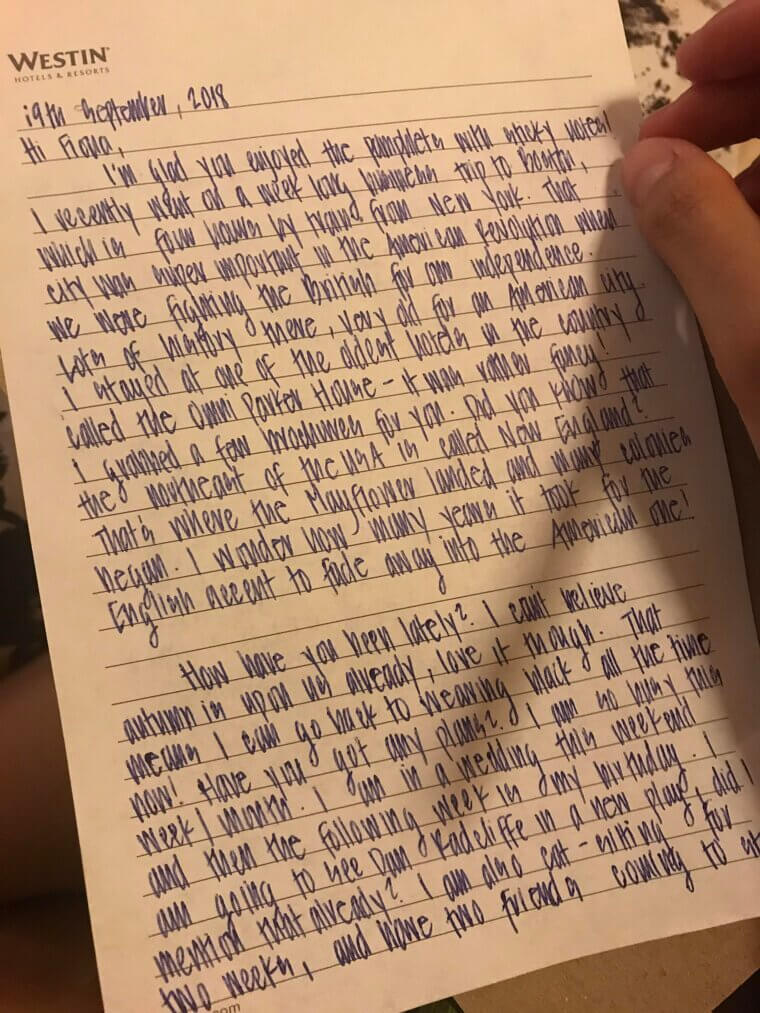 WESTIN
HOTELS & RESORTS
19th September, 2018
Hi Fiona,
I'm glad you enjoyed the pamphlets with sticky notes!
I recently went on a week long business trip to Boston,
which is four hours by train from New York. That
city was super important in the American Revolution when
we were fighting the British for our independence.
Lots of history there, very old for an American city.
I stayed at one of the oldest hotels in the country
called the Omni Parker House - it was rather fancy!
I grabbed a few brochures for you. Did you know that
the northeast of the USA is called New England?
That's where the Mayflower landed and many colonies
began. I wonder how many years it took for the
English accent to fade away into the American one!
How have you been lately? I can't believe
autumn is upon us already, love it though. That
means I can go back to wearing black all the time
now! Have you got any plans? I am so busy this
week/month. I am in a wedding this weekend
and then the following week is my birthday. I
am going to see Dan Radcliffe in a new play, did I
mention that already? I am also cat-sitting for
two weeks, and have two friends coming to
.com